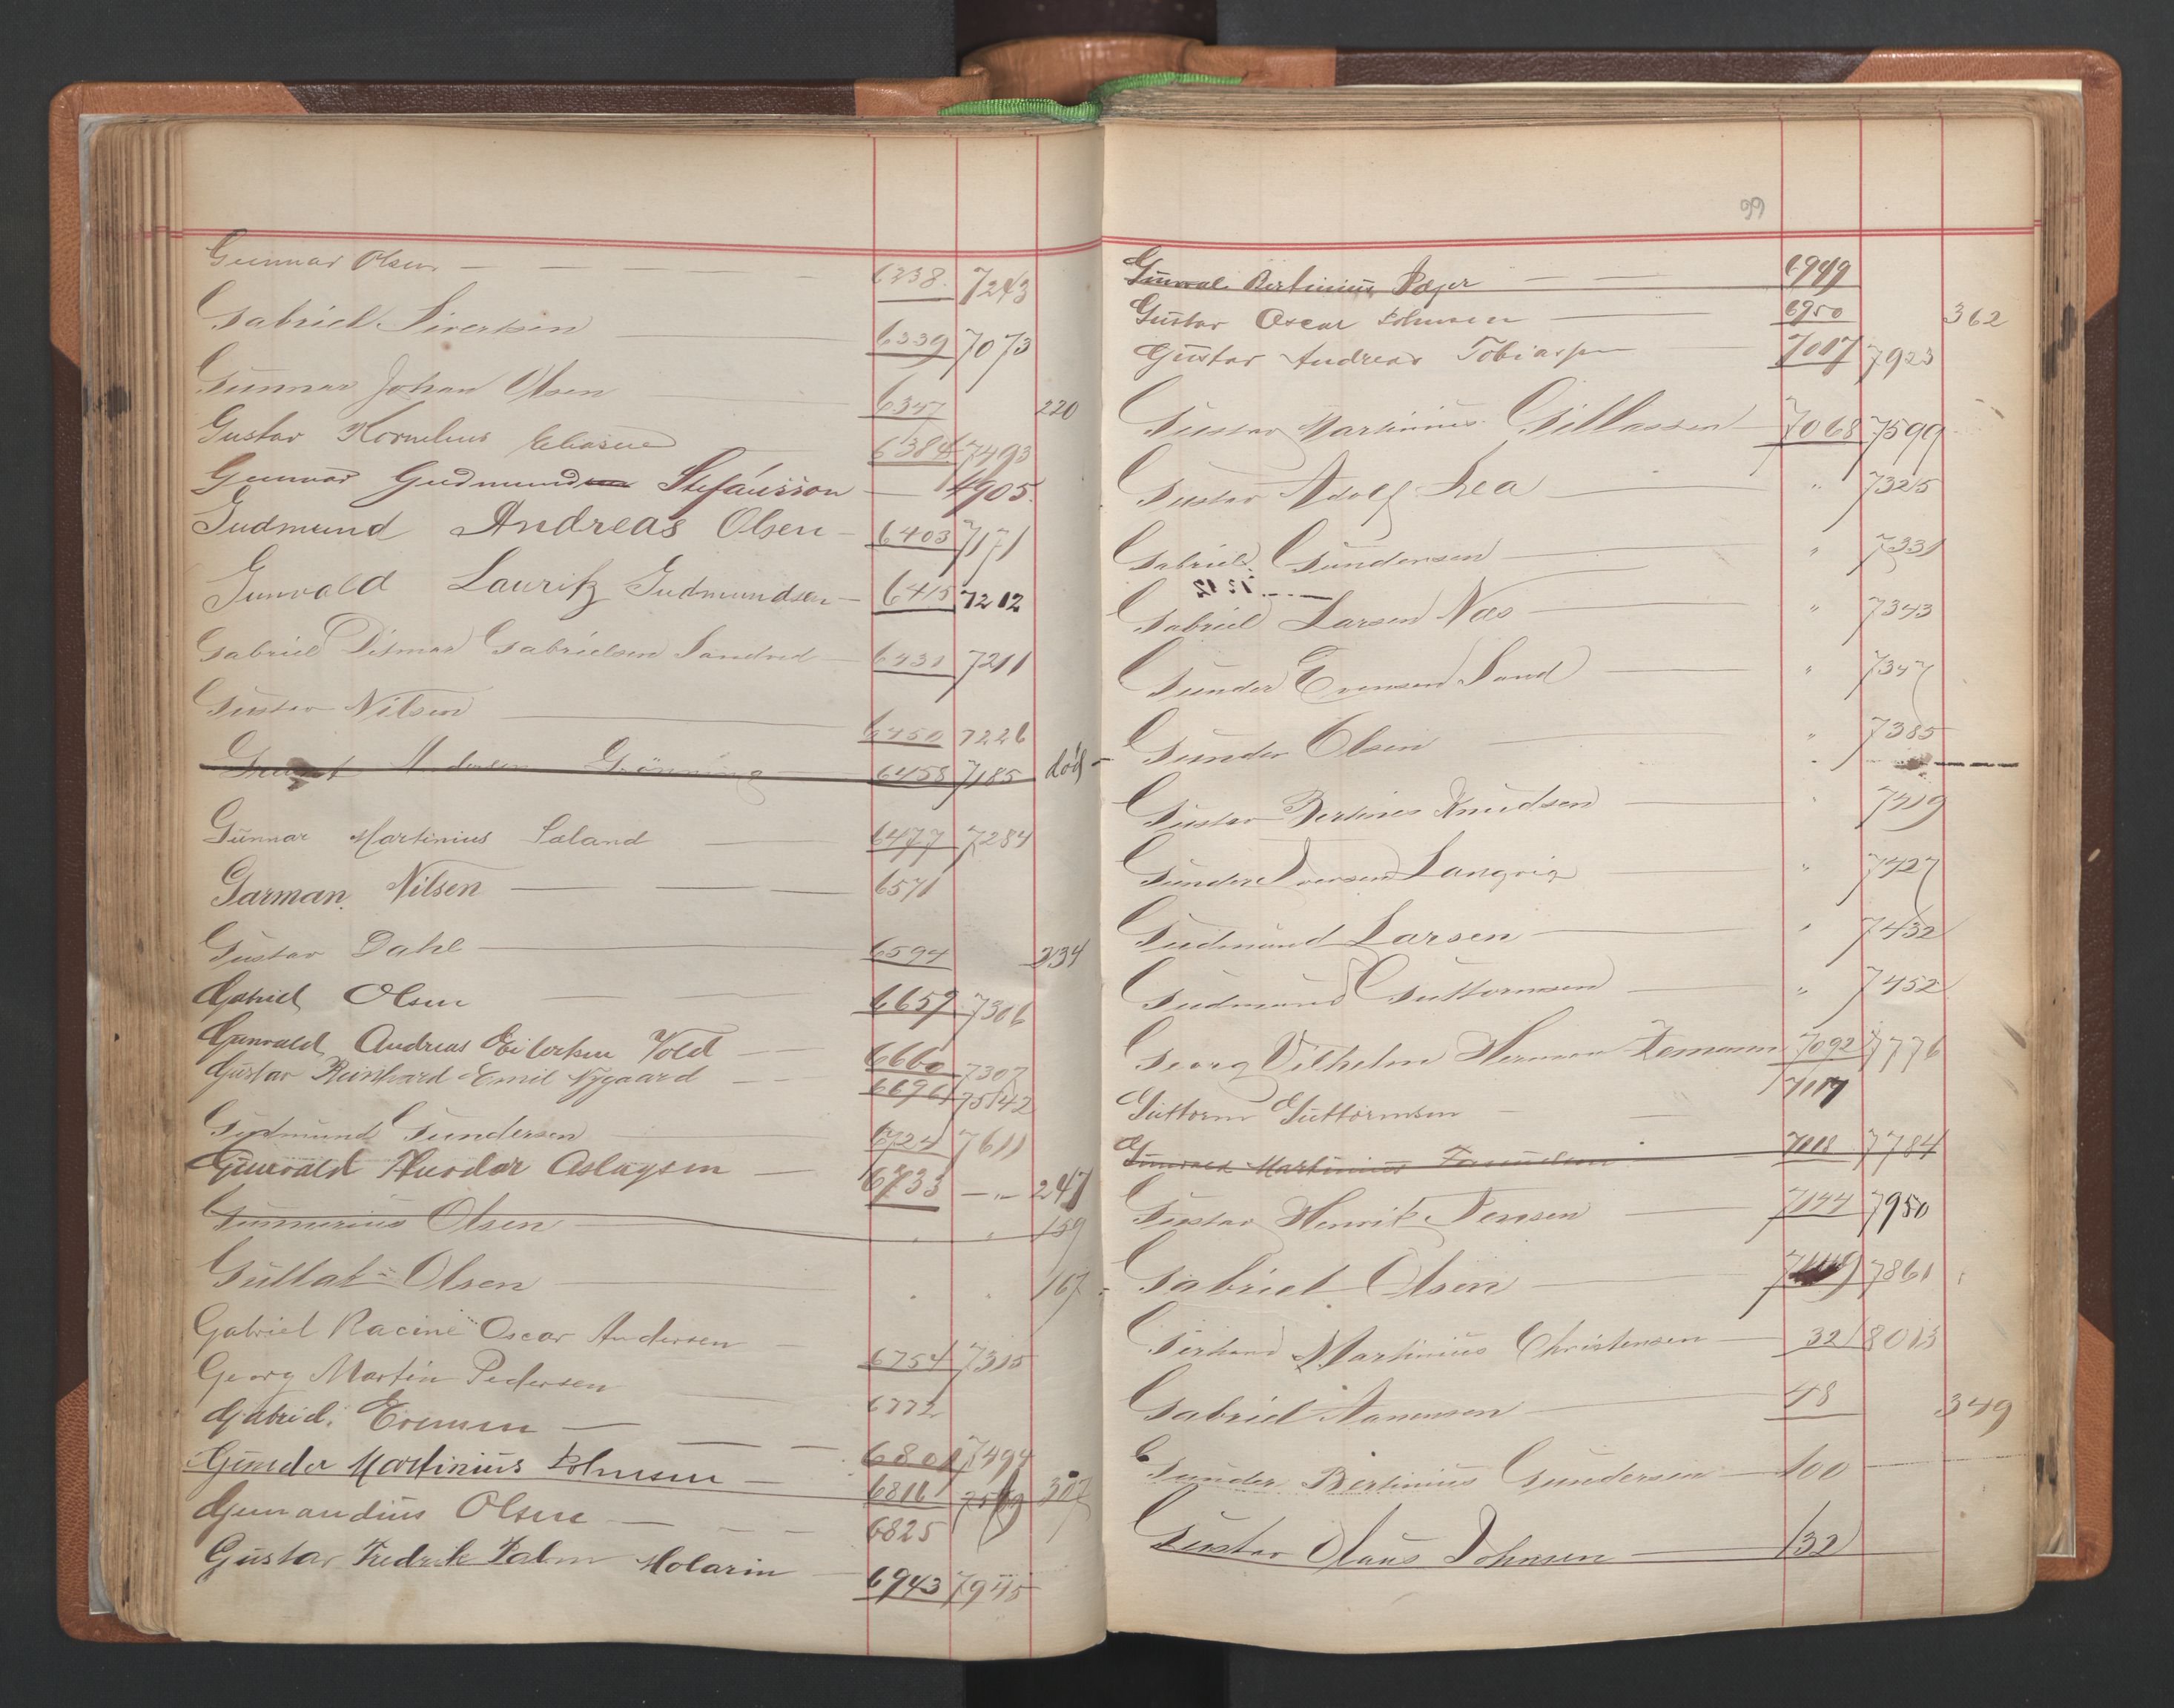 Gunnar Olsen — — — — — 6238. 7243
Gabriel Sivertsen — 6339 7073
Gunnar Johan Olsen — 6347 220
Gustav Kornelius Eliasen — 6384 7493
Gunnar Gudmundsen Stefánsson — 4905.
Gudmund Andreas Olsen — 6403 7171
Gunvald Lauritz Gudmundsen — 6415 7212
Gabriel Ditmar Gabrielsen Sandved — 6431 7211
Gustav Nilsen — 6450 7226
Andersen Grönning — 6458 7185 död —
Gunnar Martinius Saland — 6477 7284
Garman Nilsen — — — 6571
Gustav Dahl — 6594 234
Gabriel Olsen — 6659 7306
Gunvald Andreas Eilertsen Vold — 6660 7307
Gustav Reinhard Emil Nygaard — — 6696 7542
Gudmund Gundersen — 6724 7611
Gunvald Theodor Aslagsen — 6733 — „ — 247
Gunnerius Olsen — 159
Gullak Olsen — 167
Gabriel Racine Oscar Andersen — 6754 7315
Georg Martin Pedersen — 6772
Gabriel Evensen — — — 6801 7494
Gunder Martinius Johnsen — 6816 307
Gunandius Olsen — — — 6825
Gustav Fredrik Palm Molarin — 6943 7945
99
Bertinius — — 6949
Gustav Oscar Johnsen — — 6950 362
Gustav Andreas Tobiassen — 7017 7923
Gustav Martinius Gillassen — 7068 7599
Gustav Adolf Rea — " 7325
Gabriel Gundersen — " 7331
Gabriel Larsen Nas — " 7343
Gunder Evensen Sand — " 7347
Gunder Olsen — " 7385
Gustav Bertines Knudsen — " 7419
Gunder Iversen Langvig — " 7427
Gudmund Larsen — " 7432
Gudmund Guttormsen — " 7452
Georg Vilhelm Herman Zemann 7092 7776
Guttorm Guttormsen — — 7117
Gunvald Martinius — 7118 7784
Gustav Henrik Jensen — 7144 7950
Gabriel Olsen — 7149 7861
Gerhard Martinius Christensen — 32 8013
Gabriel Aanensen — 48 349
Gunder Bertinius Gundersen — 100
Gustav Olaus Johnsen — 132